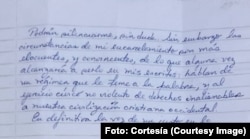 Podrán silenciarnos, sin duda. Sin embargo las
circunstancias de mi encarcelamiento son más
elocuentes, y convincentes, de lo que alguna vez
alcanzaría a serlo mis escritos: hablan de
un régimen que le teme a la palabra, y al
ejercicio cívico no violento de derechos inalienables
a nuestra civilización cristiana occidental.
En definitiva la voz de un
Foto: Cortesía (Courtesy Image)